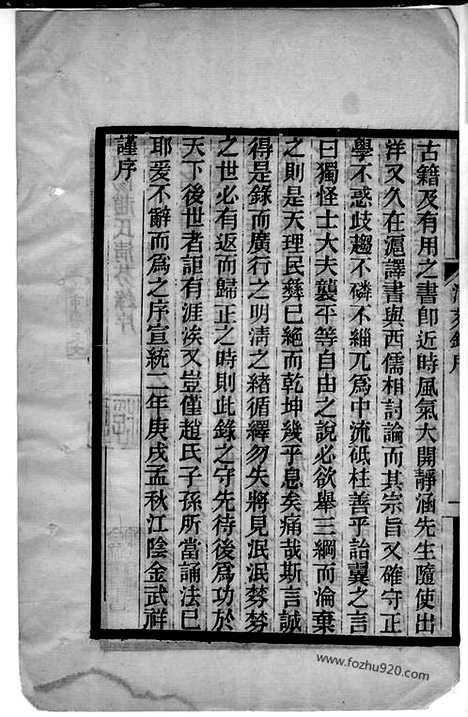 古籍及有用之書卽近時風氣大開靜涵先生隨使出
洋又久在滬譯書與西儒相討論而其宗旨又確守正
學不惑歧趨不磷不緇兀爲中流砥柱善乎詒翼之言
曰獨怪士大夫襲平等自由之說必欲舉三綱而淪棄
之則是天理民彝已絕而乾坤幾乎息矣痛哉斯言誠
得是錄而廣行之明清之緒循繹勿失將見泯泯棼棼
之世必有返而歸正之時則此錄之守先待後爲功於
天下後世者詎有涯涘又豈僅趙氏子孫所當誦法已
耶爰不辭而爲之序宣統二年庚戌孟秋江陰金武祥
謹序
www.fozhu920.com